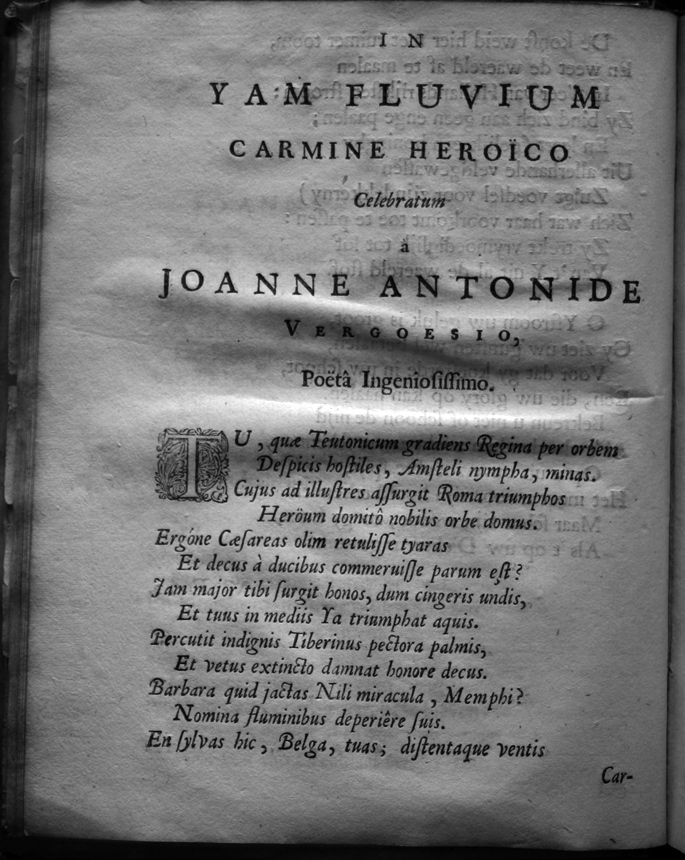 IN
YAM FLUVIUM
CARMINE HEROÏCO
Celebratum
â
JOANNE ANTONIDE
VERGOESIO,
Poëtâ Ingeniosissimo.
TU, quæ Teutonicum gradiens Regina per orbem
Despicis hostiles, Amsteli nympha, minas.
Cujus ad illustres assurgit Roma triumphos
Heröum domitô nobilis orbe domus.
Ergóne Cæsareas olim retulisse tyaras
Et decus à ducibus commeruisse parum est?
Jam major tibi surgit honos, dum cingeris undis,
Et tuus in mediis Ya triumphat aquis.
Percutit indignis Tiberinus pectora palmis,
Et vetus extincto damnat honore decus.
Barbara quid jactas Nili miracula, Memphi?
Nomina fluminibus deperiêre suis.
En sylvas hic, Belga, tuas; distentaque ventis
Car-